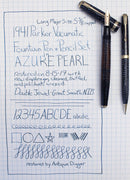 Long Major Size 5 3/8"
1941 Parker Vacumatic
Fountain Pen & Pencil Set
AZURE PEARL
restored on 8-15-19 with
new diaphragm, cleaned, buffed,
and polished w/ waxed
Double Jewel - Great Smooth NIB
12345 ABCDE abcde
restored by Antique Digger